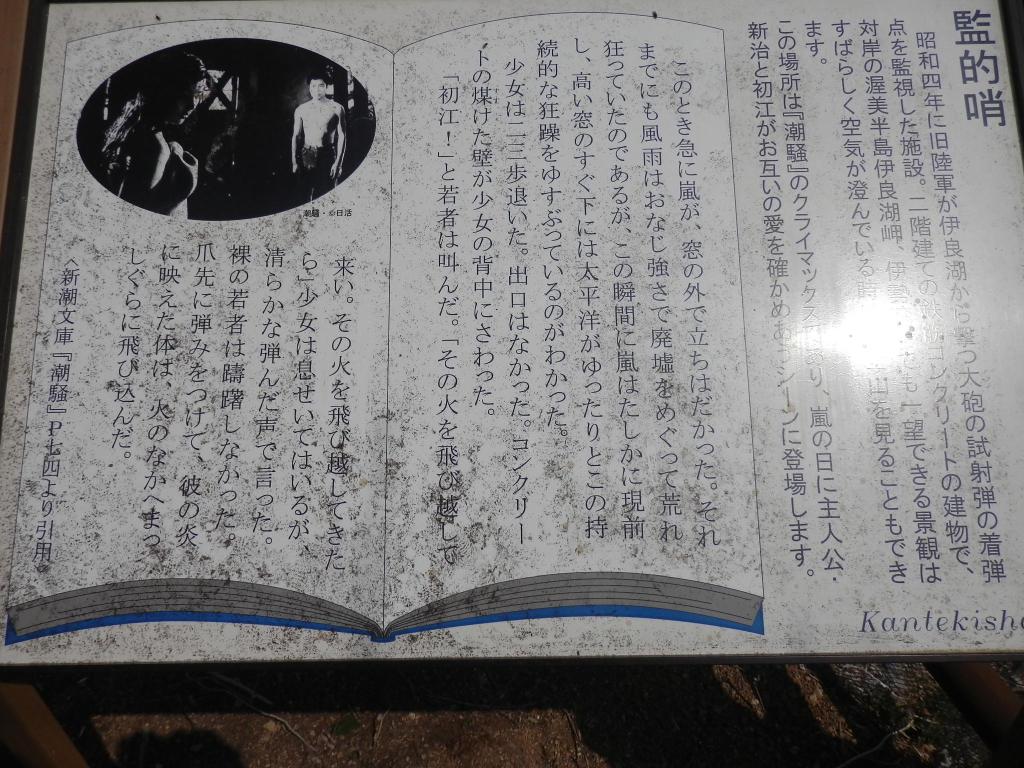 監的哨
昭和四年に旧陸軍が伊良湖から撃つ大砲の試射弾の着弾
点を監視した施設。二階建ての鉄筋コンクリートの建物で、
対岸の渥美半島伊良湖岬、伊勢 も一望できる景観は
すばらしく空気が澄んでいる時 山を見ることもでき
ます。
この場所は『潮騒』のクライマックスであり、嵐の日に主人公・
新治と初江がお互いの愛を確かめあうシーンに登場します。
このとき急に嵐が、窓の外で立ちはだかった。それ
までにも風雨はおなじ強さで廃墟をめぐって荒れ
狂っていたのであるが、この瞬間に嵐はたしかに現前
し、高い窓のすぐ下には太平洋がゆったりとこの持
続的な狂躁をゆすぶっているのがわかった。
少女は二三歩退いた。出口はなかった。コンクリー
トの煤けた壁が少女の背中にさわった。
「初江!」と若者は叫んだ。「その火を飛び越して
来い。その火を飛び越してきた
ら」少女は息せいてはいるが、
清らかな弾んだ声で言った。
裸の若者は躊躇しなかった。
爪先に弾みをつけて、彼の炎
に映えた体は、火のなかへまっ
しぐらに飛び込んだ。
〈新潮文庫『潮騒』P七四より引用〉
潮騒・©日活
Kantekisho